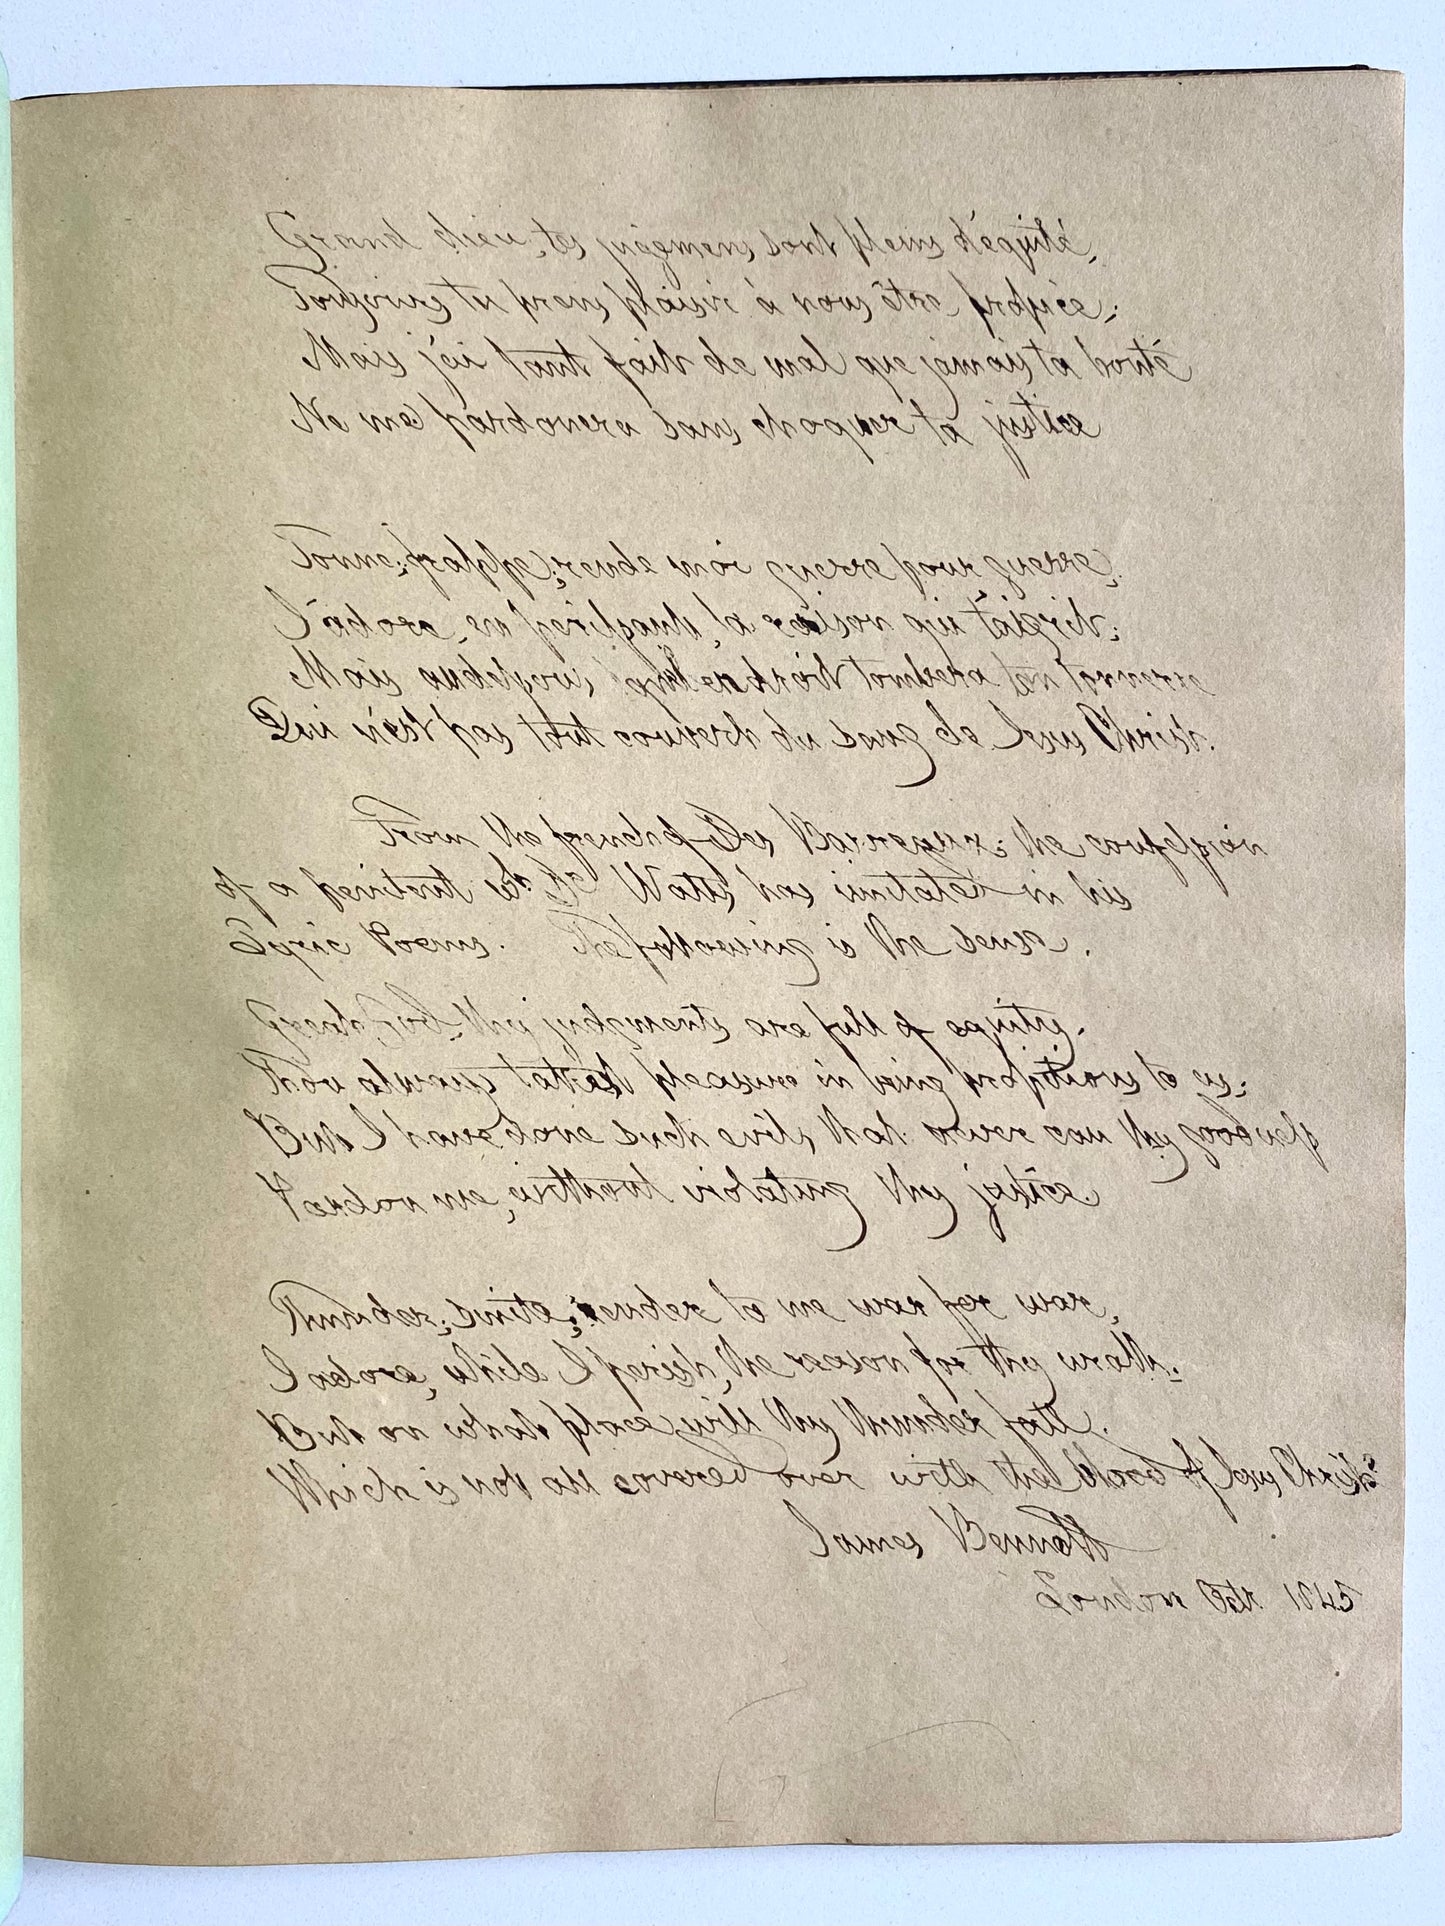 Grand Dieu, tes jugemens sont pleins d'équité,
Toujours tu prens plaisir à nous être propice;
Mais j'ai tant fait de mal que jamais ta bonté
Ne me pardonera sans choquer ta justice
Tonne; frappe; rends moi guerre pour guerre,
J'adore, en perissant, la raison qui t'aigrit;
Mais audessus, endroit tombera ton tonnerre
Qui n'est pas tout couvert du sang de Jesus Christ.
From the french of Des Barreaux; the confession
of a penitent wch Dr Watts has imitated in his
Lyric Poems. The following is the sense.
Great God, thy judgments are full of equity.
Thou always takest pleasure in being propitious to us;
But I have done such evils, that never can thy goodness
Pardon me, without violating thy justice
Thunder; smite; render to me war for war,
I adore, while I perish, the reason for thy wrath.
But on what place will thy thunder fall.
Which is not all covered over with the blood of Jesus Christ?
James Bennett
London Oct 1843